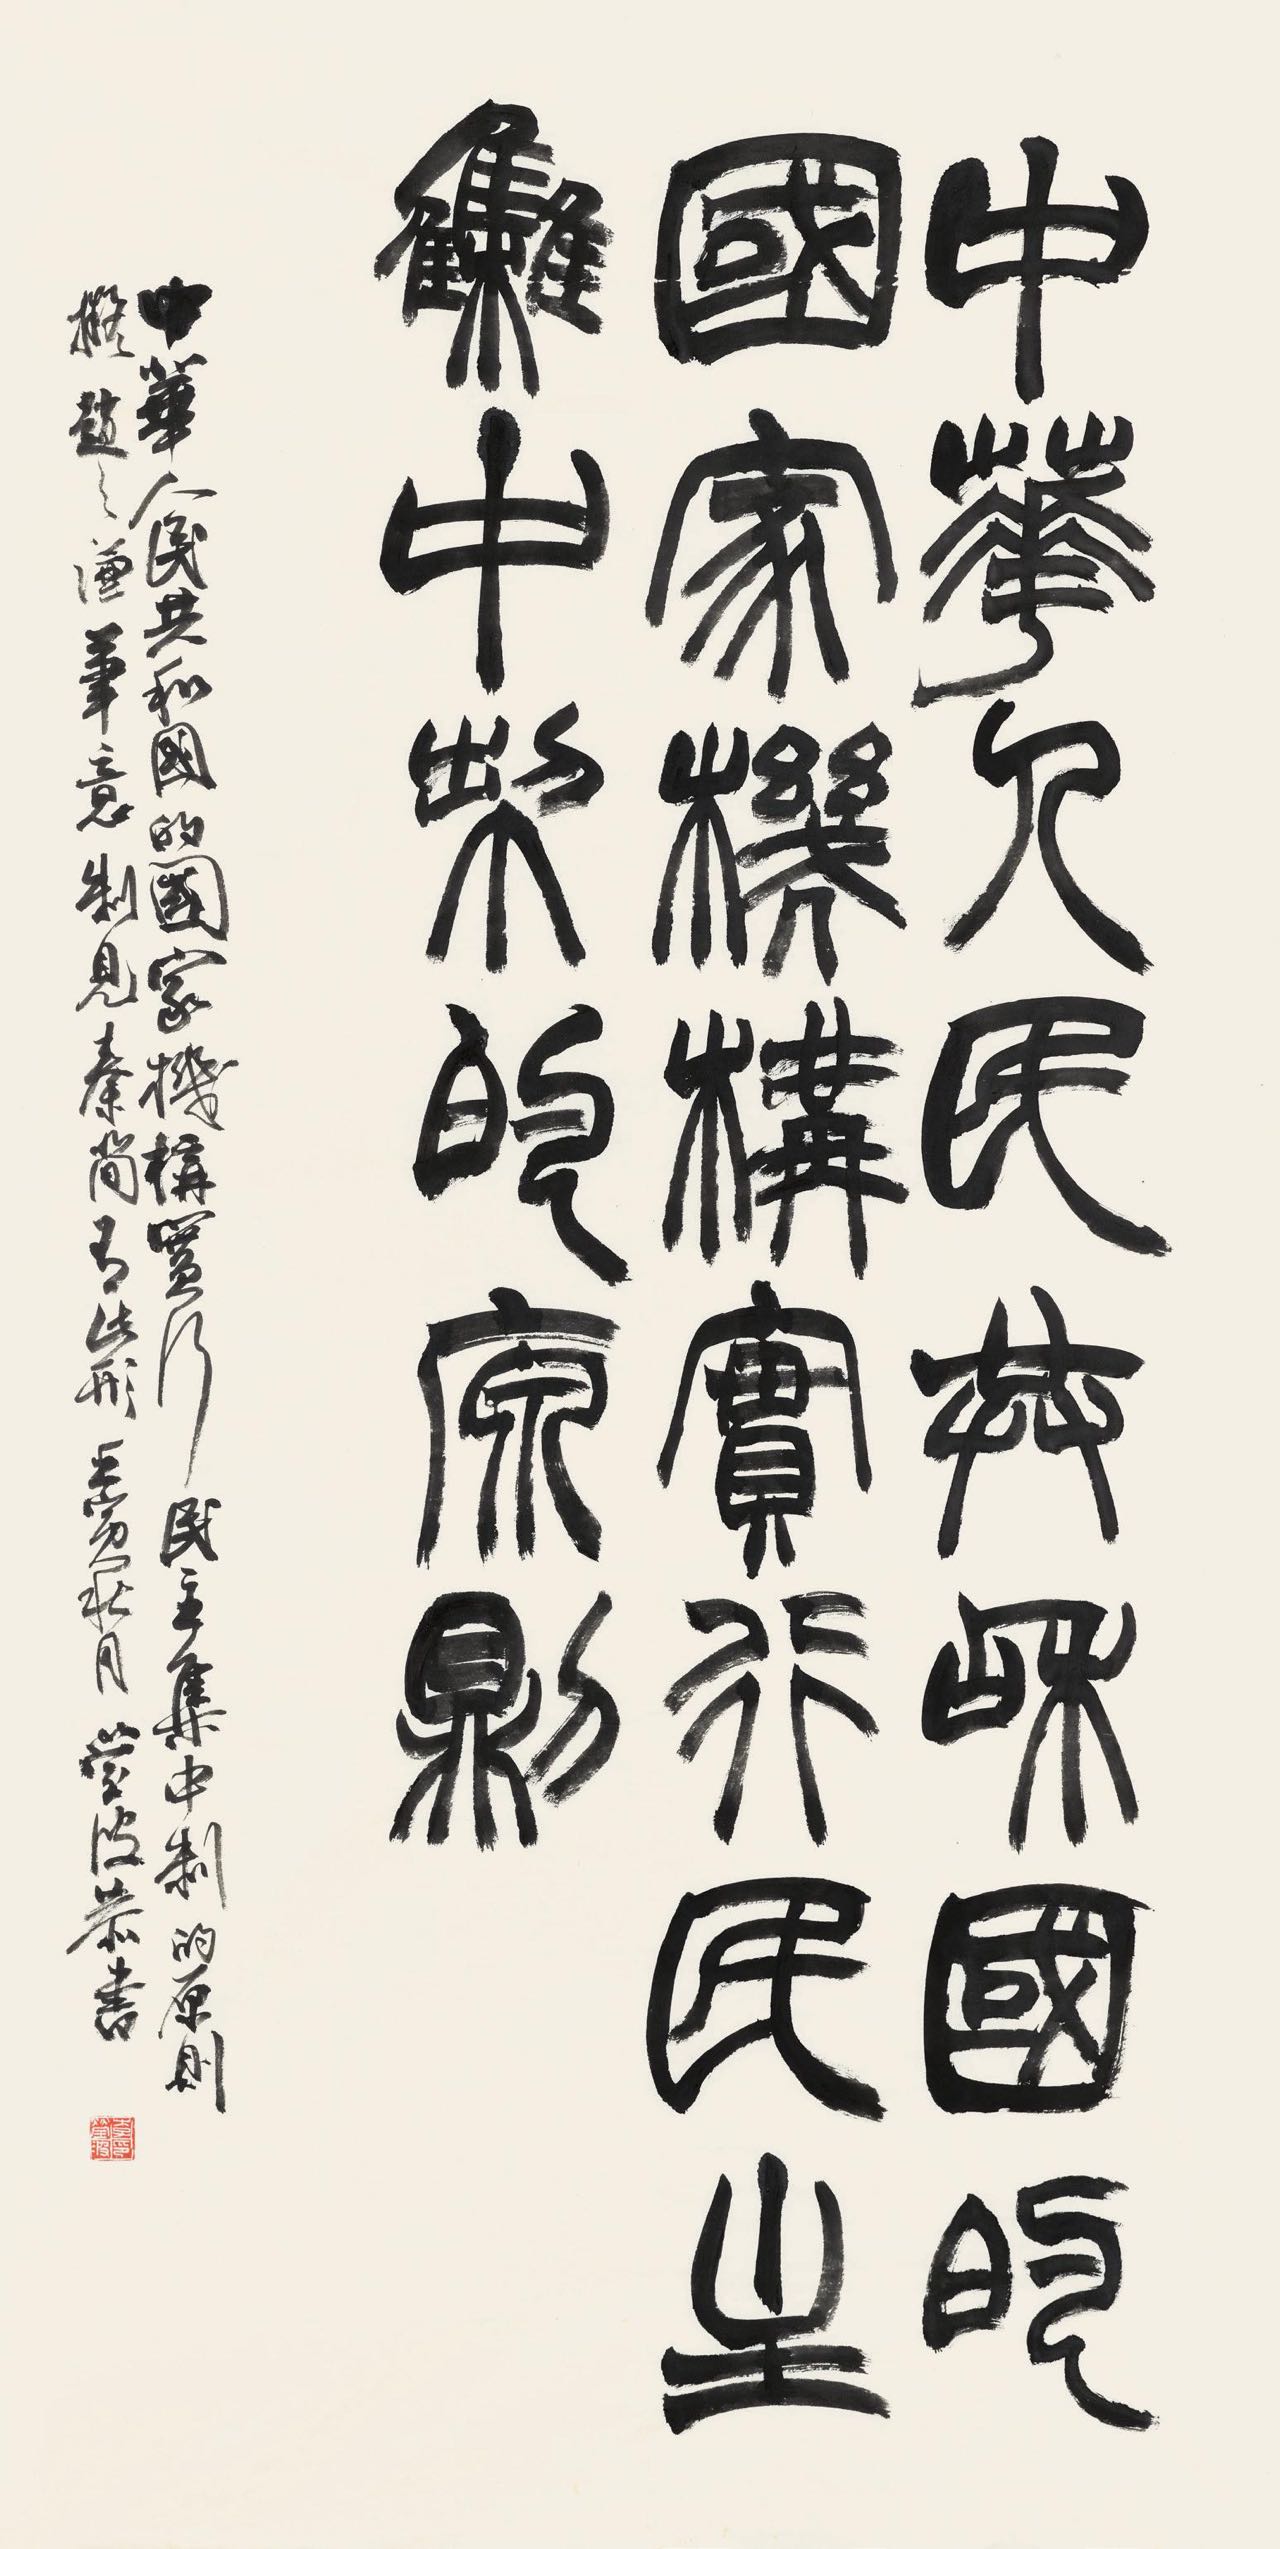 中華人民共和國的
國家機構實行民主
雧中制的原則
中華人民共和國的國家機構實行民主集中制的原則
擬趙之謙筆意制見秦簡有此形壬寅秋月營波恭書